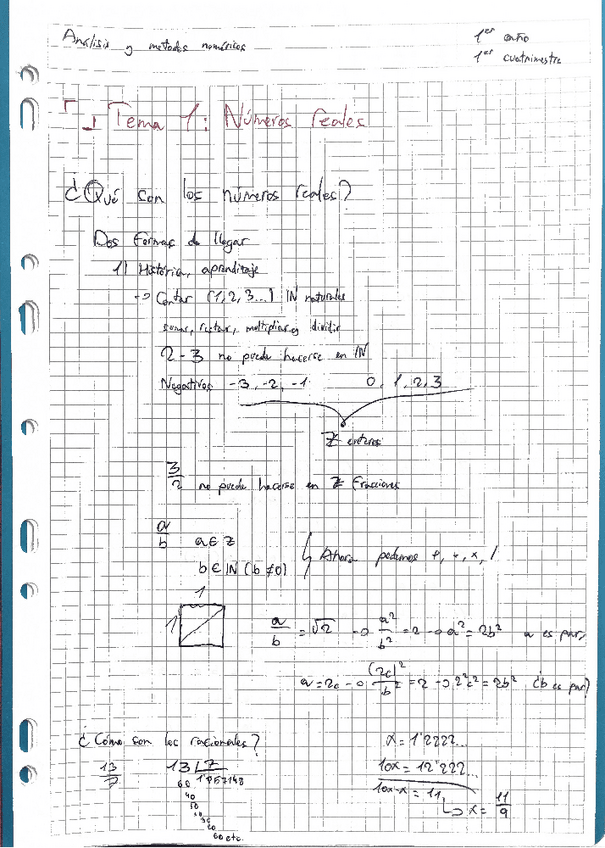 Análisis y metodos numéricos
1er año
1er cuatrimestre
Tema 1: Números reales
¿Qué son los números reales?
Dos formas de llegar
1) História, aprendizaje
-> Contar (1,2,3...) IN naturales
sumar, restar, multiplicar y dividir
2-3 no puede hacerse en IN
Negativos -3, -2, -1 0, 1, 2, 3
Z enteros
3/2 no puede hacerse en Z Fracciones
a/b a ∈ Z
b ∈ IN (b ≠ 0) Ahora podemos +, -, x, /
1
1 a/b = √2 -> a²/b² = 2 -> a² = 2b² a es par,
a = 2c -> (2c)²/b² = 2 -> 2²c² = 2b² ¿b es par?
¿Cómo son los racionales?
x = 1'2222...
10x = 12'222...
10x-x = 11
x = 11/9
13/7 13 7
1'857148
60
40
50
10
30
20
60 etc.